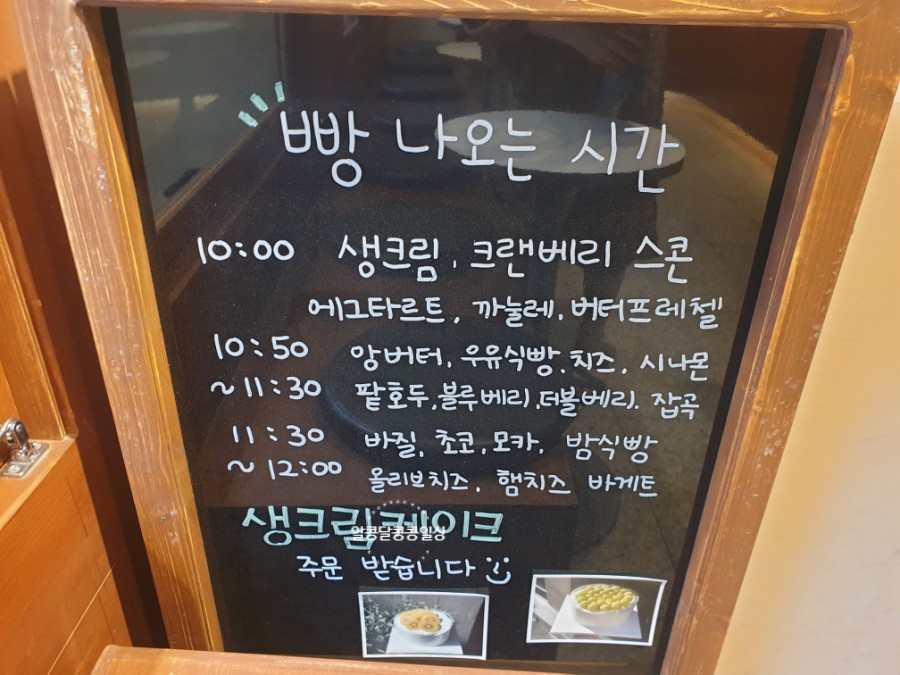 빵 나오는 시간
10:00 생크림, 크랜베리 스콘
에그타르트, 까눌레, 버터프레첼
10:50 앙버터, 우유식빵, 치즈, 시나몬
~11:30 팥호두, 블루베리, 더블베리. 잡곡
11:30 바질, 초코, 모카, 밤식빵
~12:00 올리브치즈, 햄치즈 바게트
생크림케이크
알콩달콩콩일상
주문 받습니다